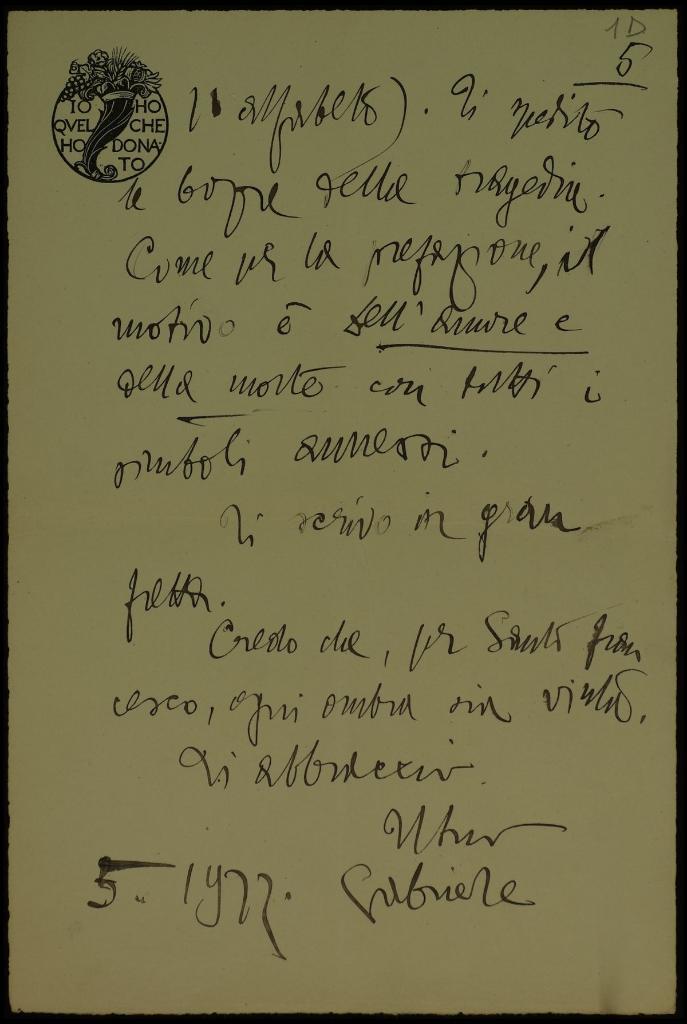 1D
5
IO HO
QVEL CHE
HO DONA-
TO
l'alfabeto). Ti spedito
le bozze della tragedia.
Come per la prefazione, il
motivo è dell'amore e
della morte con tutti i
simboli annessi.
Ti scrivo in gran
fretta.
Credo che, per Santo Fran
cesco, ogni ombra sia vinta.
Ti abbraccio.
Gabriele
5. 1927.